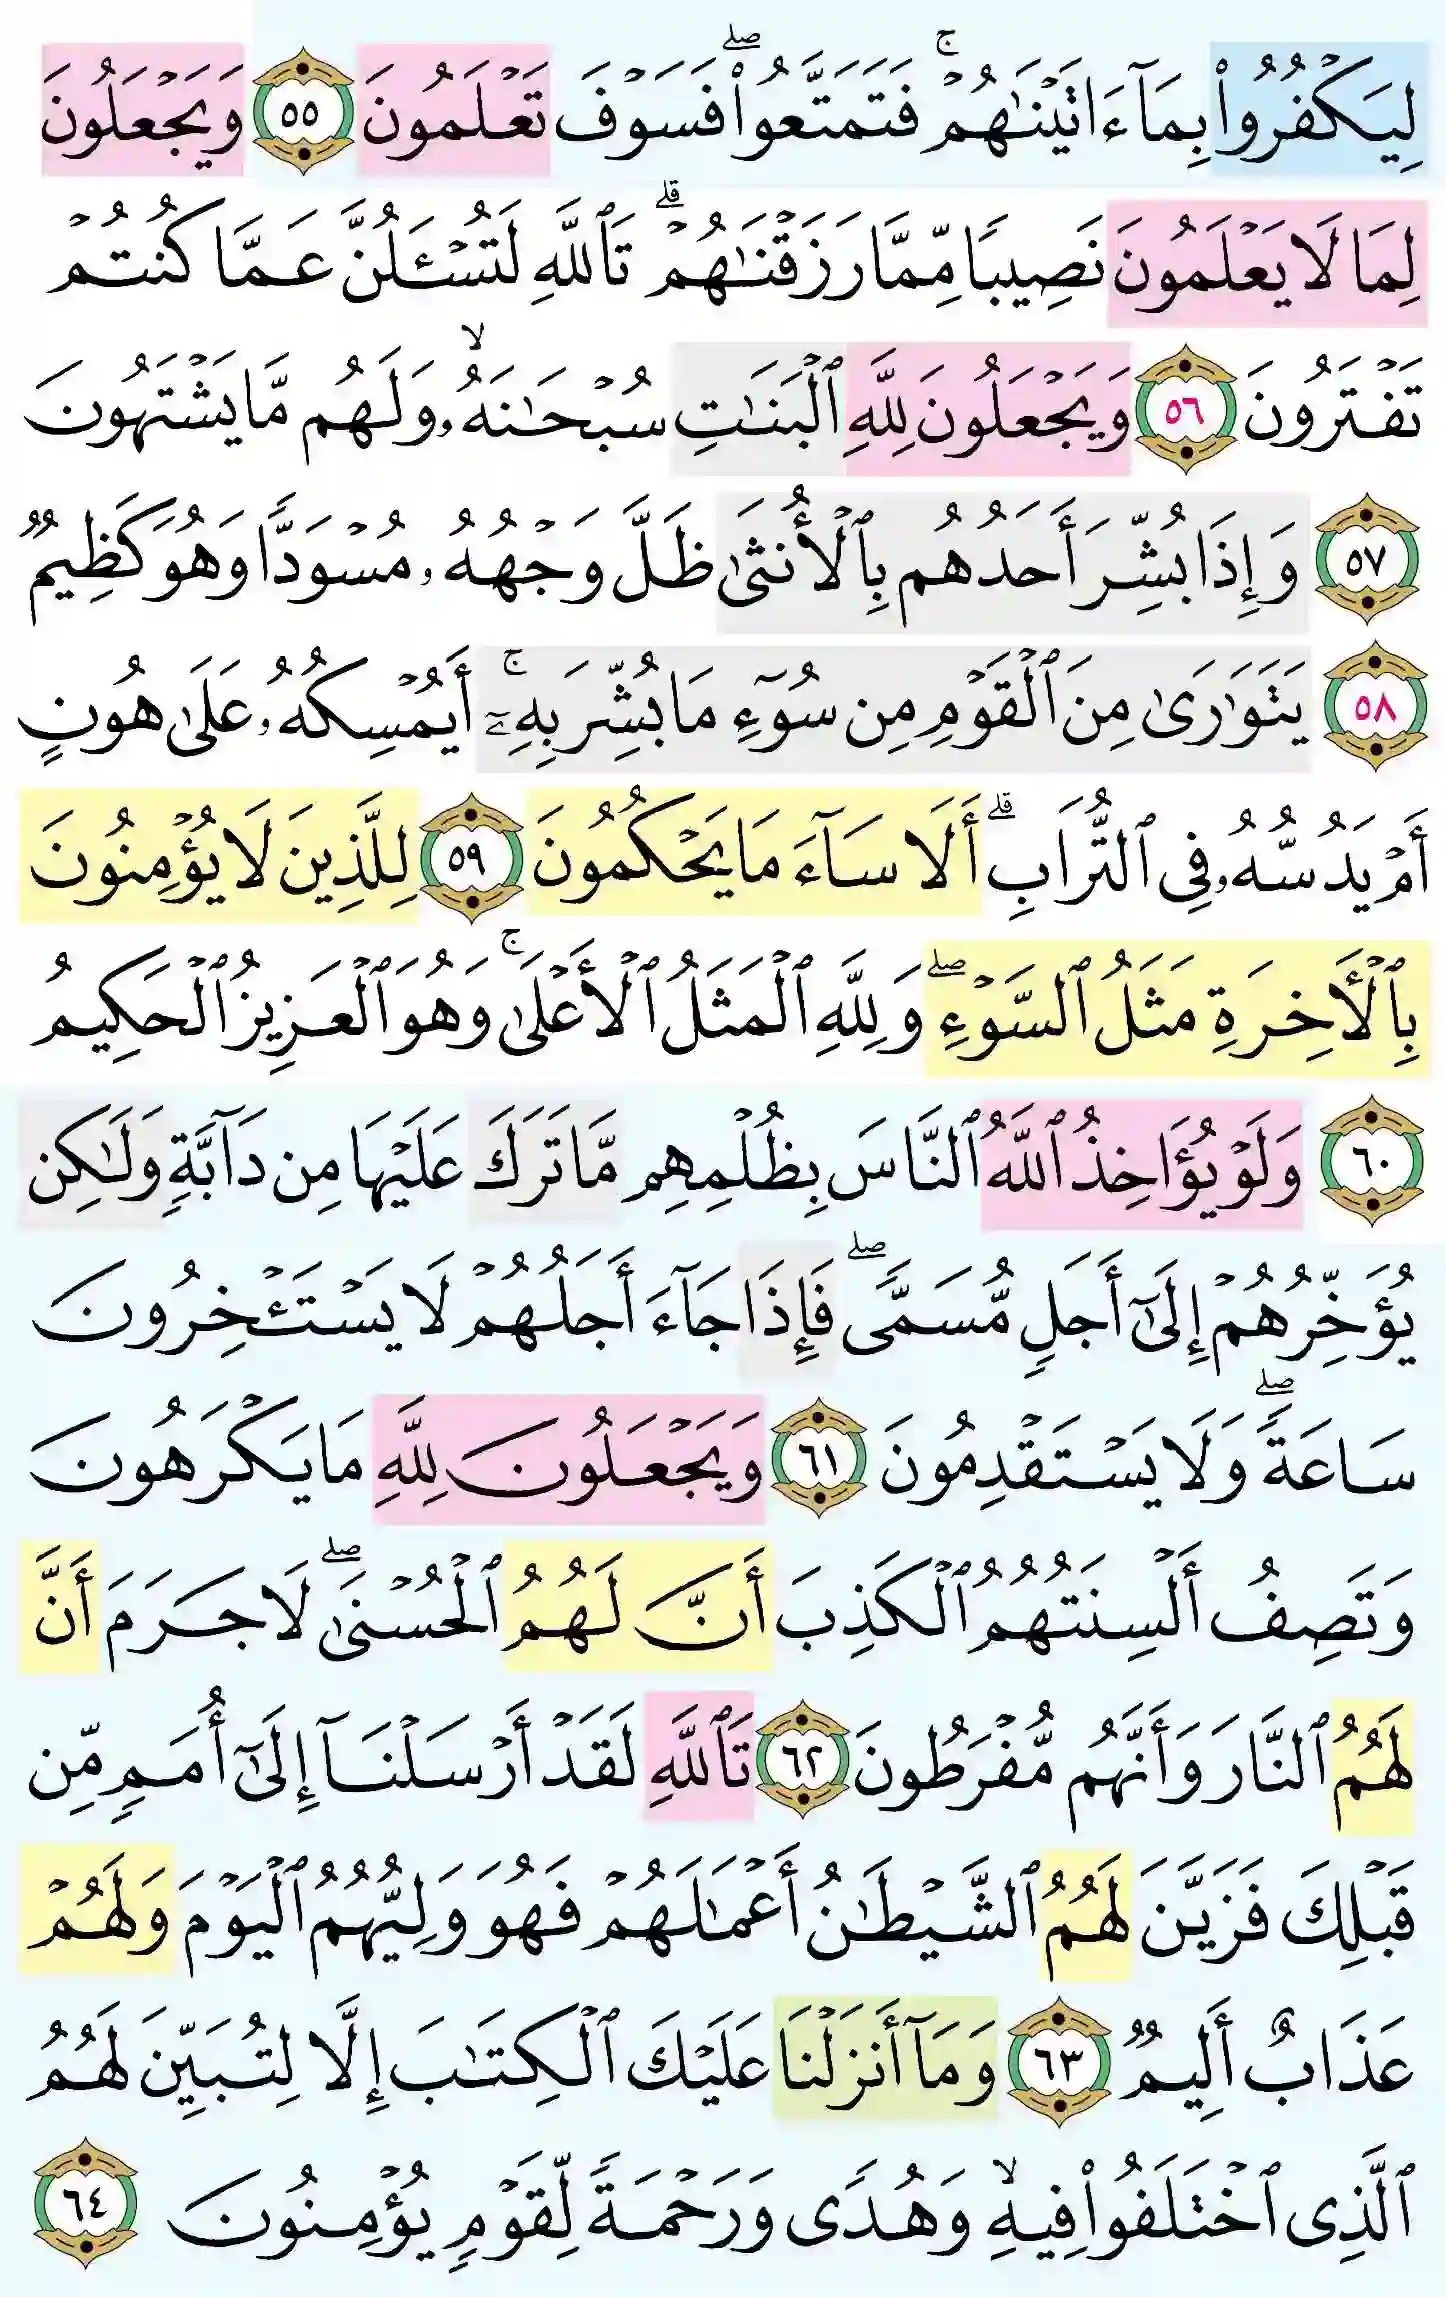 لِيَكۡفُرُواْ بِمَآ ءَاتَيۡنَٰهُمۡۚ فَتَمَتَّعُواْ فَسَوۡفَ تَعۡلَمُونَ ٥٥ وَيَجۡعَلُونَ
لِمَا لَا يَعۡلَمُونَ نَصِيبٗا مِّمَّا رَزَقۡنَٰهُمۡۗ تَٱللَّهِ لَتُسۡـَٔلُنَّ عَمَّا كُنتُمۡ
تَفۡتَرُونَ ٥٦ وَيَجۡعَلُونَ لِلَّهِ ٱلۡبَنَٰتِ سُبۡحَٰنَهُۥ وَلَهُم مَّا يَشۡتَهُونَ
٥٧ وَإِذَا بُشِّرَ أَحَدُهُم بِٱلۡأُنثَىٰ ظَلَّ وَجۡهُهُۥ مُسۡوَدّٗا وَهُوَ كَظِيمٞ
٥٨ يَتَوَٰرَىٰ مِنَ ٱلۡقَوۡمِ مِن سُوٓءِ مَا بُشِّرَ بِهِۦٓۚ أَيُمۡسِكُهُۥ عَلَىٰ هُونٍ
أَمۡ يَدُسُّهُۥ فِي ٱلتُّرَابِۗ أَلَا سَآءَ مَا يَحۡكُمُونَ ٥٩ لِلَّذِينَ لَا يُؤۡمِنُونَ
بِٱلۡأٓخِرَةِ مَثَلُ ٱلسَّوۡءِۖ وَلِلَّهِ ٱلۡمَثَلُ ٱلۡأَعۡلَىٰۚ وَهُوَ ٱلۡعَزِيزُ ٱلۡحَكِيمُ
٦٠ وَلَوۡ يُؤَاخِذُ ٱللَّهُ ٱلنَّاسَ بِظُلۡمِهِم مَّا تَرَكَ عَلَيۡهَا مِن دَآبَّةٖ وَلَٰكِن
يُؤَخِّرُهُمۡ إِلَىٰٓ أَجَلٖ مُّسَمّٗىۖ فَإِذَا جَآءَ أَجَلُهُمۡ لَا يَسۡتَـٔۡخِرُونَ
سَاعَةٗۖ وَلَا يَسۡتَقۡدِمُونَ ٦١ وَيَجۡعَلُونَ لِلَّهِ مَا يَكۡرَهُونَ
وَتَصِفُ أَلۡسِنَتُهُمُ ٱلۡكَذِبَ أَنَّ لَهُمُ ٱلۡحُسۡنَىٰۖ لَا جَرَمَ أَنَّ
لَهُمُ ٱلنَّارَ وَأَنَّهُم مُّفۡرَطُونَ ٦٢ تَٱللَّهِ لَقَدۡ أَرۡسَلۡنَآ إِلَىٰٓ أُمَمٖ مِّن
قَبۡلِكَ فَزَيَّنَ لَهُمُ ٱلشَّيۡطَٰنُ أَعۡمَٰلَهُمۡ فَهُوَ وَلِيُّهُمُ ٱلۡيَوۡمَ وَلَهُمۡ
عَذَابٌ أَلِيمٞ ٦٣ وَمَآ أَنزَلۡنَا عَلَيۡكَ ٱلۡكِتَٰبَ إِلَّا لِتُبَيِّنَ لَهُمُ
ٱلَّذِي ٱخۡتَلَفُواْ فِيهِۙ وَهُدٗى وَرَحۡمَةٗ لِّقَوۡمٖ يُؤۡمِنُونَ ٦٤